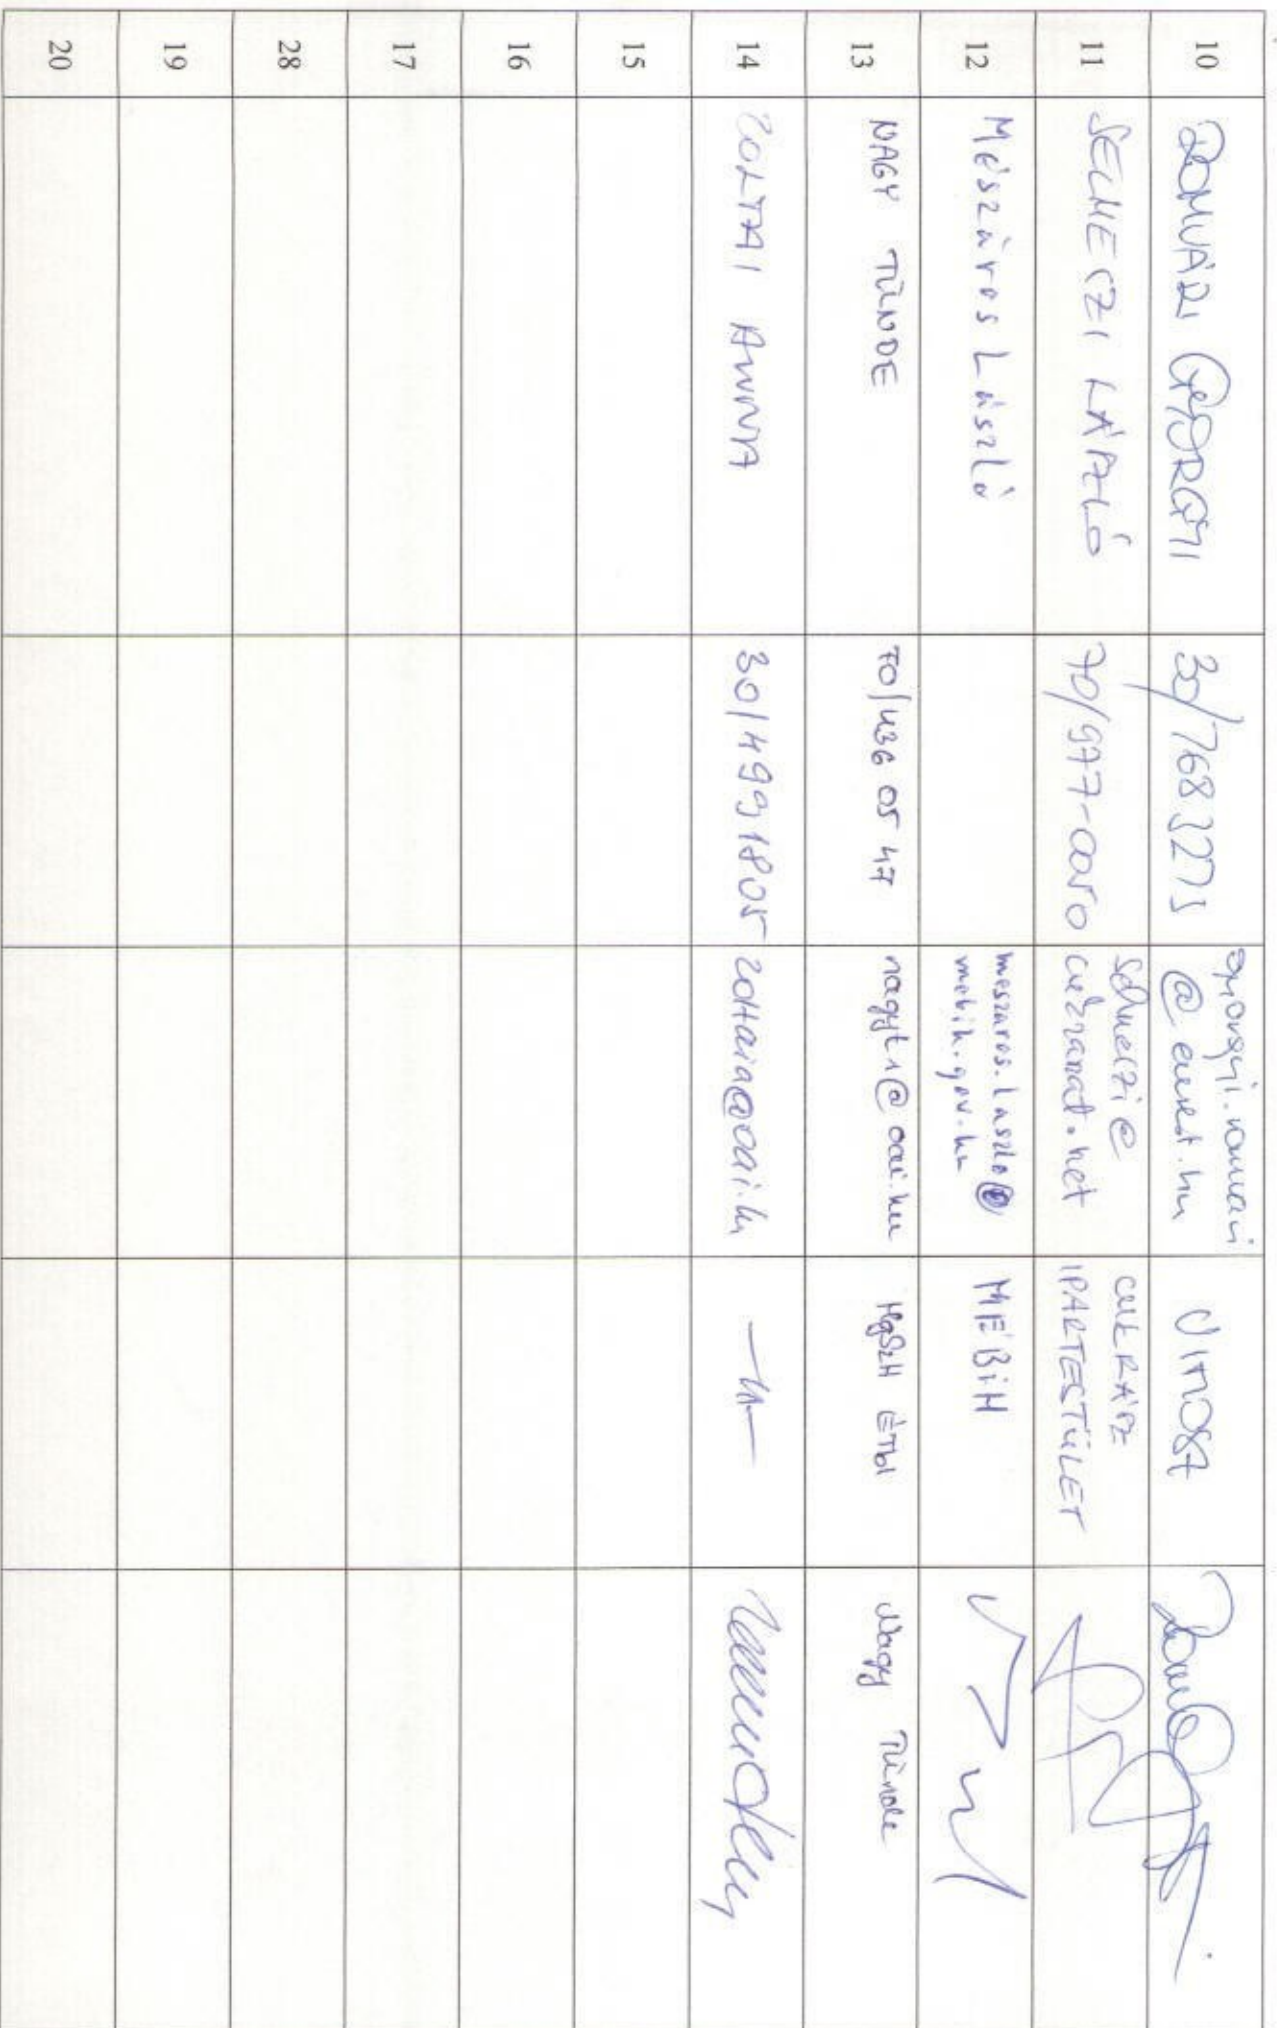 10 ROMVÁRI GYÖRGYI 30/768 3273 gyorgyi.romvari
@ emest.hu VIMOSZ
11 SELMECZI LÁSZLÓ 70/977-0050 selmeczi@
cukraszat.net CUKRÁSZ
IPARTESTÜLET
12 Mészáros László meszaros.laszlo@
mebih.gov.hu MÉBiH
13 NAGY TÜNDE 70/436 05 47 nagyt1@oai.hu MgSzH ÉTbI Nagy Tünde
14 ZOLTAI ANNA 30/4991805 zoltaia@oai.hu —"—
15
16
17
28
19
20